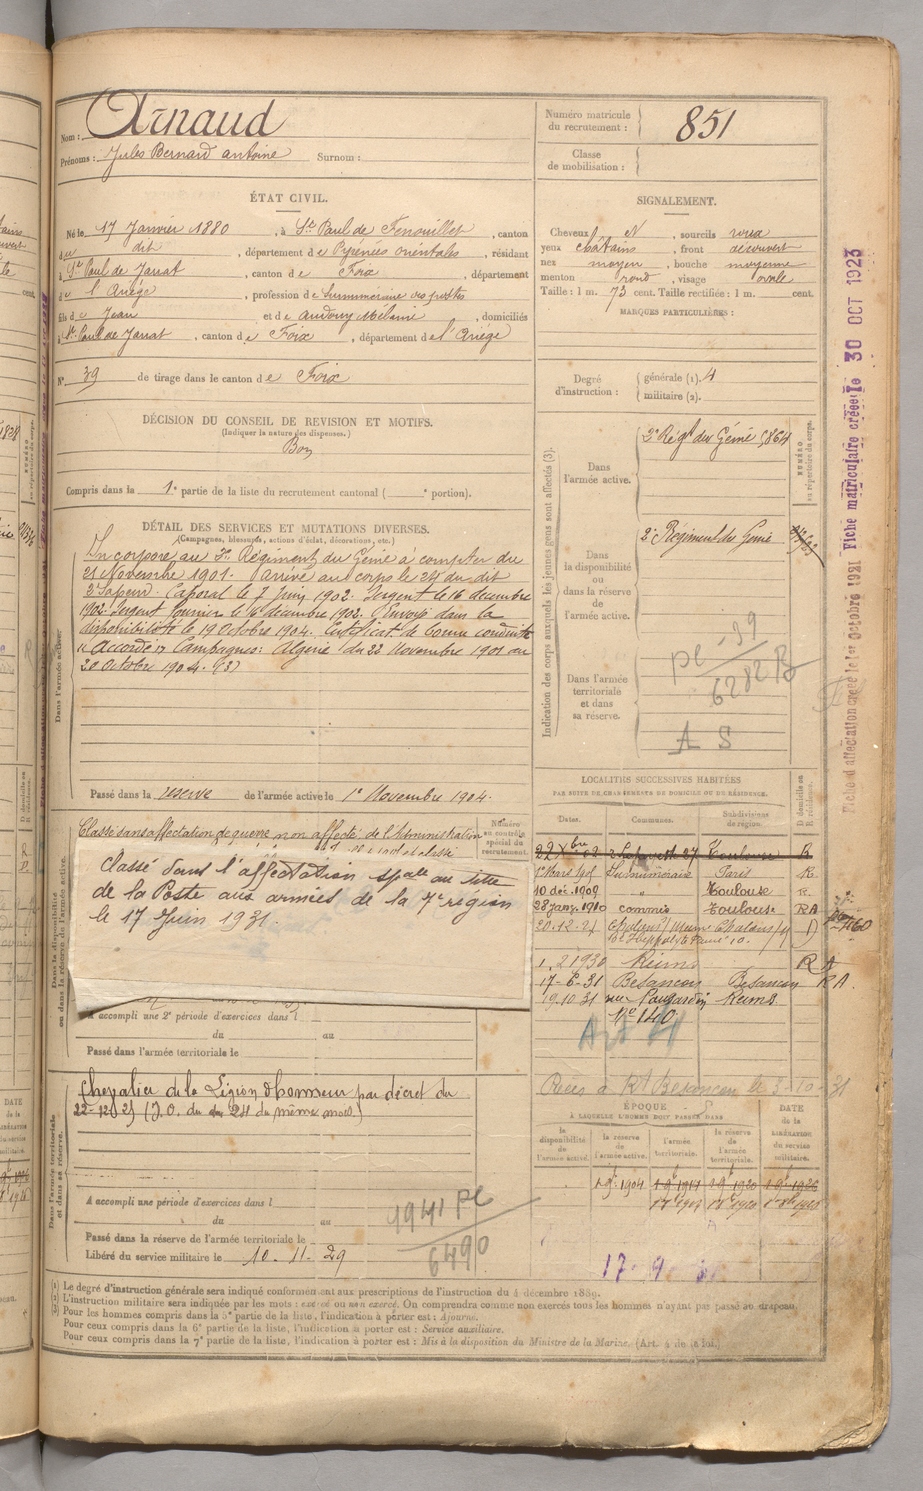 Nom : Arnaud
Prénoms : Jules Bernard antoine Surnom :
Numéro matricule du recrutement : 851
Classe de mobilisation :
ÉTAT CIVIL.
Né le 17 Janvier 1880, à St Paul de Fenouillet, canton
du dit, département de Pyrénées orientales, résidant
à St Paul de Jarrat, canton de Foix, département
de l'Ariège, profession de Surnuméraire des postes
fils de Jean et de Audouy Mélanie, domiciliés
à St Paul de Jarrat, canton de Foix, département de l'Ariège
N° 39 de tirage dans le canton de Foix
SIGNALEMENT.
Cheveux N, sourcils roux
yeux châtains, front découvert
nez moyen, bouche moyenne
menton rond, visage ovale
Taille : 1 m. 73 cent. Taille rectifiée : 1 m. cent.
MARQUES PARTICULIÈRES :
Degré d'instruction : générale (1). 4
militaire (2).
DÉCISION DU CONSEIL DE REVISION ET MOTIFS.
(Indiquer la nature des dispenses.)
Bon
Compris dans la 1e partie de la liste du recrutement cantonal ( e portion).
DÉTAIL DES SERVICES ET MUTATIONS DIVERSES.
(Campagnes, blessures, actions d'éclat, décorations, etc.)
Incorporé au 2e Régiment du Génie à compter du
21 Novembre 1901. Arrivé au corps le 24 du dit
2e Sapeur. Caporal le 7 Juin 1902. Sergent le 16 décembre
1902. Sergent fourrier le 16 décembre 1902. Envoyé dans la
disponibilité le 19 Octobre 1904. Certificat de bonne conduite
"Accordé" Campagnes : Algérie du 22 Novembre 1901 au
20 Octobre 1904. (3)
Dans l'armée active.
Passé dans la reserve de l'armée active le 1e Novembre 1904.
Indication des corps auxquels les jeunes gens sont affectés (3).
Dans l'armée active.
2e Régt du Génie 5864
NUMÉRO au répertoire du corps.
Dans la disponibilité ou dans la réserve de l'armée active.
2e Régiment du Génie
Dans l'armée territoriale et dans sa réserve.
pc - 39
6282 B
A S
Classé sans affectation de guerre non affecté de l'Administration
Numéro au contrôle spécial du recrutement.
Classé dans l'affectation spale au titre
de la Poste aux armées de la 7e région
le 17 Juin 1931.
Dans la disponibilité ou dans la réserve de l'armée active.
A accompli une 2e période d'exercices dans l
du au
Passé dans l'armée territoriale le
LOCALITÉS SUCCESSIVES HABITÉES
PAR SUITE DE CHANGEMENTS DE DOMICILE OU DE RÉSIDENCE.
Dates. Communes. Subdivisions de région. D. domicile ou R. résidence.
Toulouse R
Surnuméraire Paris R.
10 déc. 1909 " Toulouse R.
28 Janv. 1910 commis Toulouse RA
20.12.21 Chalons s/ Marne Chalons s/ M D
1.2 1930 Reims R A
17-6-31 Besançon Besançon R A
19.10.31 rue Reims
N° 140
Besançon le 3-10-31
Dans l'armée territoriale et dans sa réserve.
Chevalier de la Légion d'honneur par décret du
22-12-25 (J.O. du 24 du même mois.)
A accompli une période d'exercices dans l
du au
Passé dans la réserve de l'armée territoriale le
Libéré du service militaire le 10 . 11 . 29
1941 Pc
6490
ÉPOQUE
À LAQUELLE L'HOMME DOIT PASSER DANS
DATE de la LIBÉRATION du service militaire.
la disponibilité de l'armée active. la réserve de l'armée active. l'armée territoriale. la réserve de l'armée territoriale.
1 9bre 1904
17 . 9
(1) Le degré d'instruction générale sera indiqué conformément aux prescriptions de l'instruction du 4 décembre 1889.
(2) L'instruction militaire sera indiquée par les mots : exercé ou non exercé. On comprendra comme non exercés tous les hommes n'ayant pas passé au drapeau.
Pour les hommes compris dans la 5e partie de la liste, l'indication à porter est : Ajourné.
Pour ceux compris dans la 6e partie de la liste, l'indication à porter est : Service auxiliaire.
Pour ceux compris dans la 7e partie de la liste, l'indication à porter est : Mis à la disposition du Ministre de la Marine. (Art. 4 de la loi.)
Fiche d'affectation créée le 1er Octobre 1921 Fiche matriculaire créée le 30 OCT 1923